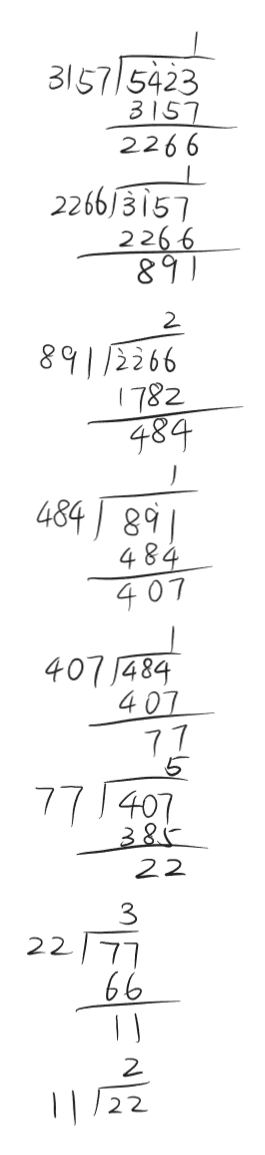 1
3157 5423
3157
2266
1
2266 3157
2266
891
2
891 2266
1782
484
1
484 891
484
407
1
407 484
407
77
5
77 407
385
22
3
22 77
66
11
2
11 22